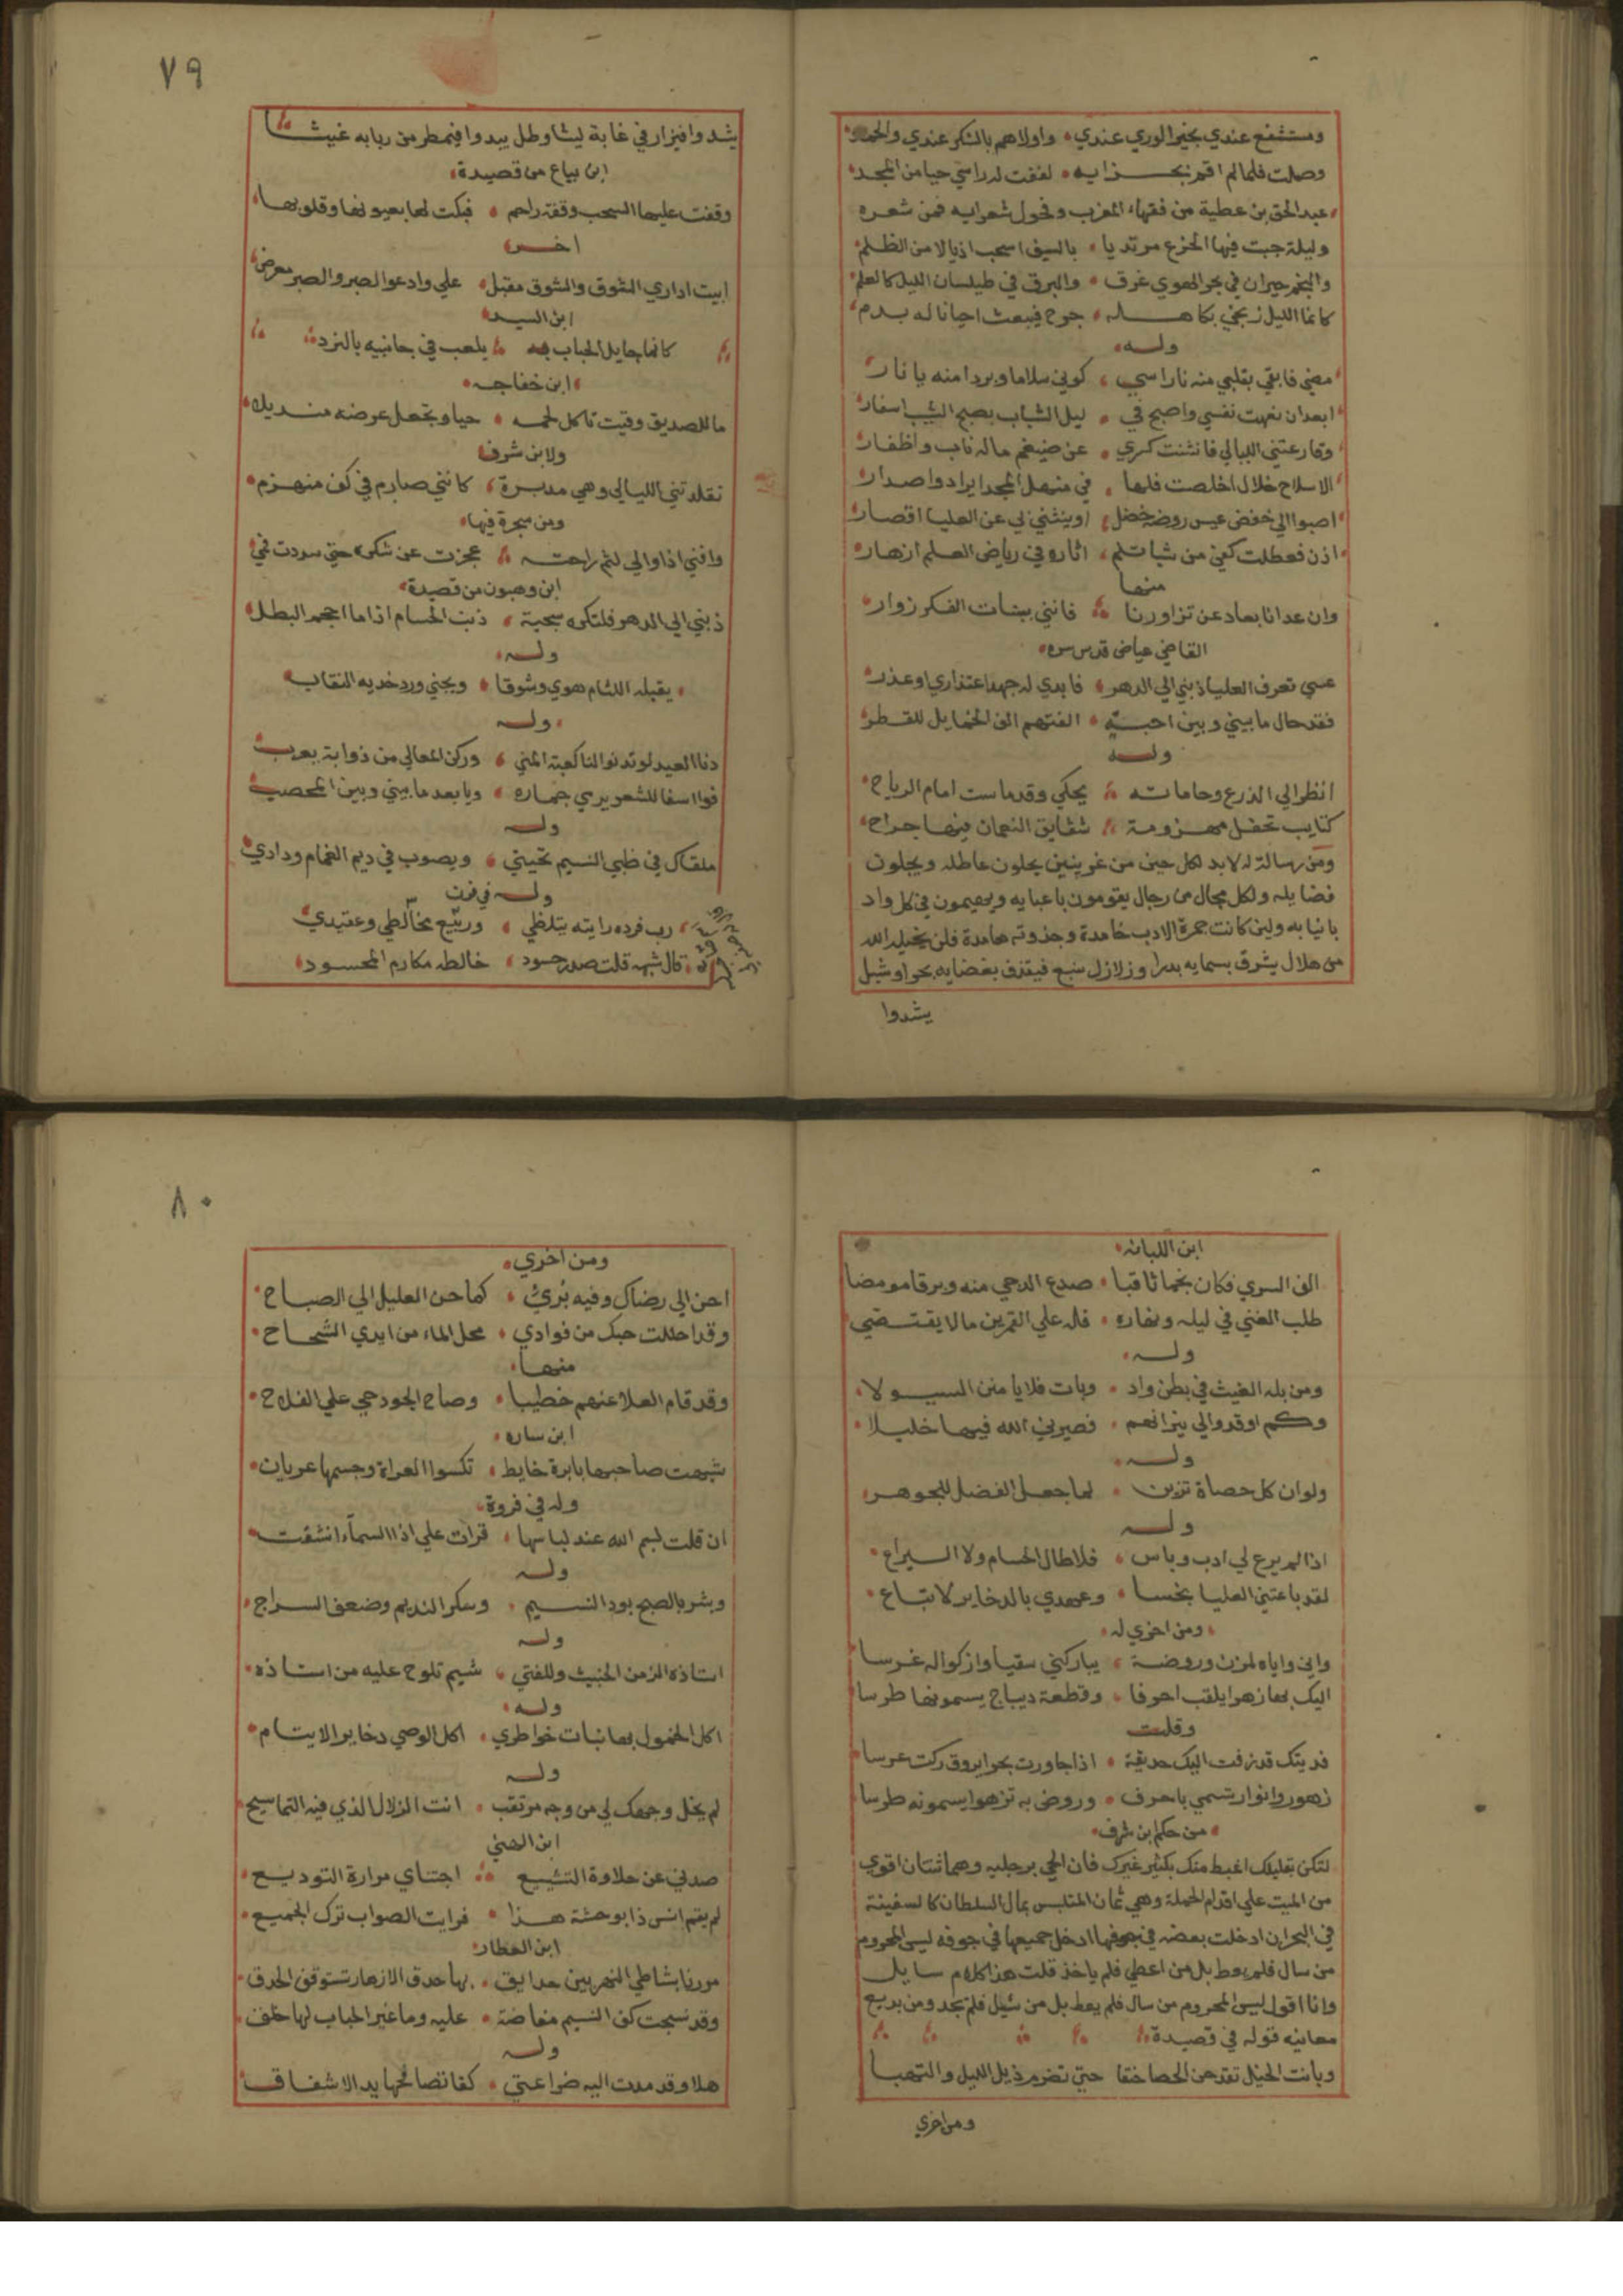 ومستشفع عندي بخير الوري عندي واولاهم بالشكر عندي والحمد
وصلت فلما لم اقم بجزايه لففت له راسي حيا من المجد
عبد الحق بن عطية من فقهاء المغرب وفحول شعرايه فمن شعره
وليلة جبت فيها الجزع مرتديا بالسيف اسحب اذيالا من الظلم
والنجم حيران في بحر الهوي غرق والبرق في طيلسان الليل كالعلم
كانما الليل زنجي بكاهله جرح فيبعث احيانا له بدم
وله
مضي فابقي بقلبي منه نار اسي كوني سلاما وبردا منه يا نار
ابعد ان نعمت نفسي واصبح في ليل الشباب بصبح الشيب اسفار
وقارعتني الليالي فانثنت كسري عن ضيغم ماله ناب واظفار
الا سلاح خلال اخلصت فلها في منهل المجد ايراد واصدار
اصبوا الي خفض عيس روضه خضل او ينثني لي عن العليا اقصار
اذن فعطلت كفي من شبا قلم اثاره في رياض العلم ازهار
منها
وان عدانا بعاد عن تزاورنا فانني ببنات الفكر زوار
القاضي عياض قدس سره
عسي تعرف العليا ذنبي الي الدهر فابدي له جهد اعتذاري او عذر
فقد حال ما بيني وبين احبة الفتهم الف الخمايل للقطر
وله
انظر الي الزرع وخاماته يحكي وقد ماست امام الرياح
كتايب تحفل مهزومة شقايق النعمان فيها جراح
ومن رسالة له لا بد لكل حين من غر بنين يحلون عاطله ويجلون
فضايله ولكل مجال من رجال يقومون باعبايه ويهيمون في كل واد
بانبايه ولين كانت جمرة الادب خامدة وجذوته هامدة فلن يخليه الله
من هلال يشرق بسمايه بدرا وزلازل ينبع فيقذف بفضايه بحرا وشبل
يشدوا
٧٩
يشدوا فيزار في غابة ليثا وطل يبدوا فيمطر من ربابه غيثا
ابن بياع من قصيدة
وقفت عليها السحب وقفة راحم فبكت لها بعيونها وقلوبها
اخر
ابيت اداري الشوق والشوق مقبل علي وادعوا الصبر والصبر معرض
ابن السيد
كانما جايل الحباب به يلعب في جانبيه بالنرد
ابن خفاجه
ما للصديق وقيت تاكل لحمه حيا وتجعل عرضه منديلا
ولابن شرف
تقلدتني الليالي وهي مدبرة كانني صارم في كف منهزم
ومن هجرة فيها
وافني اذا والي لثم راحته عجزت عن شكره حتي سددت فمي
ابن وهبون من قصيدة
ذنبي الي الدهر فلتكره سجية ذنب الحسام اذا ما احجم البطل
وله
يقبله اللثام هوي وشوقا ويجني ورد خديه النقاب
وله
دنا العيد لو تدنوا لنا كعبة المني وركن المعالي من ذوابة يعرب
فوا اسفا للشعر يرمي جماره ويا بعد ما بيني وبين المحصب
وله
ملقاك في ظبي النسيم تحيتي ويصوب في ديم الغمام ودادي
وله في فرن
رب فرن رايته يتلظي وربيع مخالطي وعقيدي
قال شبهه قلت صدر حسود خالطه مكارم المحسود
ابن اللبانه
الف السري فكان نجما ثاقبا صدع الدجي منه وبرقا مومضا
طلب الغني في ليله ونهاره فله علي القمرين مالا يقتضي
وله
ومن بله الغيث في بطن واد وبات فلا يامنن السيولا
وكم اوقدوا لي نيرانهم فصيرني الله فيها خليلا
وله
ولو ان كل حصاة تزين لما جعل الفضل للجوهر
وله
اذا لم يرع لي ادب وباس فلا طال الحسام ولا اليراع
لقد باعتني العليا بخسا وعهدي بالدخاير لا تباع
ومن اخري له
واني واياه لمزن وروضة يباركني سقيا وازكوا له غرسا
اليك بها زهرا يلقب احرفا وقطعة ديباج يسمونها طرسا
وقلت
فديتك قد زفت اليك حديقة اذا جاورت بحرا يروق زكت غرسا
زهور وانوار تسمي باحرف وروض به تزهوا يسمونه طرسا
من حكم ابن شرف
لتكن بقليلك اغبط منك بكثير غيرك فان الحي برجليه وهما ثنتان اقوي
من الميت علي اقدام الحملة وهي ثمان المتلبس بمال السلطان كالسفينة
في البحر ان ادخلت بعضه في جوفها ادخل جميعها في جوفه ليس المحروم
من سال فلم يعط بل من اعطي فلم ياخذ قلت هذا كلام سايل
وانا اقول ليس المحروم من سال فلم يعط بل من سئيل فلم يجد ومن بديع
معانيه قوله في قصيدة
وباتت الخيل تقدحن الحصا حنقا حتي تضرم ذيل الليل والتهبا
ومن اخري
٨٠
ومن اخري
احن الي رضاك وفيه برئ كما حن العليل الي الصباح
وقد احللت حبك من فوادي محل الماء من ايدي الشحاح
منها
وقد قام العلا عنهم خطيبا وصاح الجود حي علي الفلاح
ابن ساره
شبهت صاحبها بابرة خايط تكسوا العراة وجسمها عريان
وله في فروة
ان قلت بسم الله عند لباسها قرات علي اذا السماء انشقت
وله
وبشر بالصبح برد النسيم وسكر النديم وضعف السراج
وله
استاذه الزمن الخبيث وللفتي شيم تلوح عليه من استاذه
وله
اكل الخمول بها نبات خواطري اكل الوصي دخاير الايتام
وله
لم يخل وجهك لي من وجه مرتقب انت الزلال الذي فيه التماسيح
ابن الصني
صدني عن حلاوة التشييع اجتناي مرارة التوديع
لم يقم انس ذا بوحشة هذا فرايت الصواب ترك الجميع
ابن العطار
مررنا بشاطي النهر بين حدايق بها حدق الازهار تستوقف الحدق
وقد نسجت كف النسيم مفاضة عليه وما غير الحباب لها حلق
وله
هلا وقد مدت اليه ضراعتي كفا تصافحها يد الاشفاق